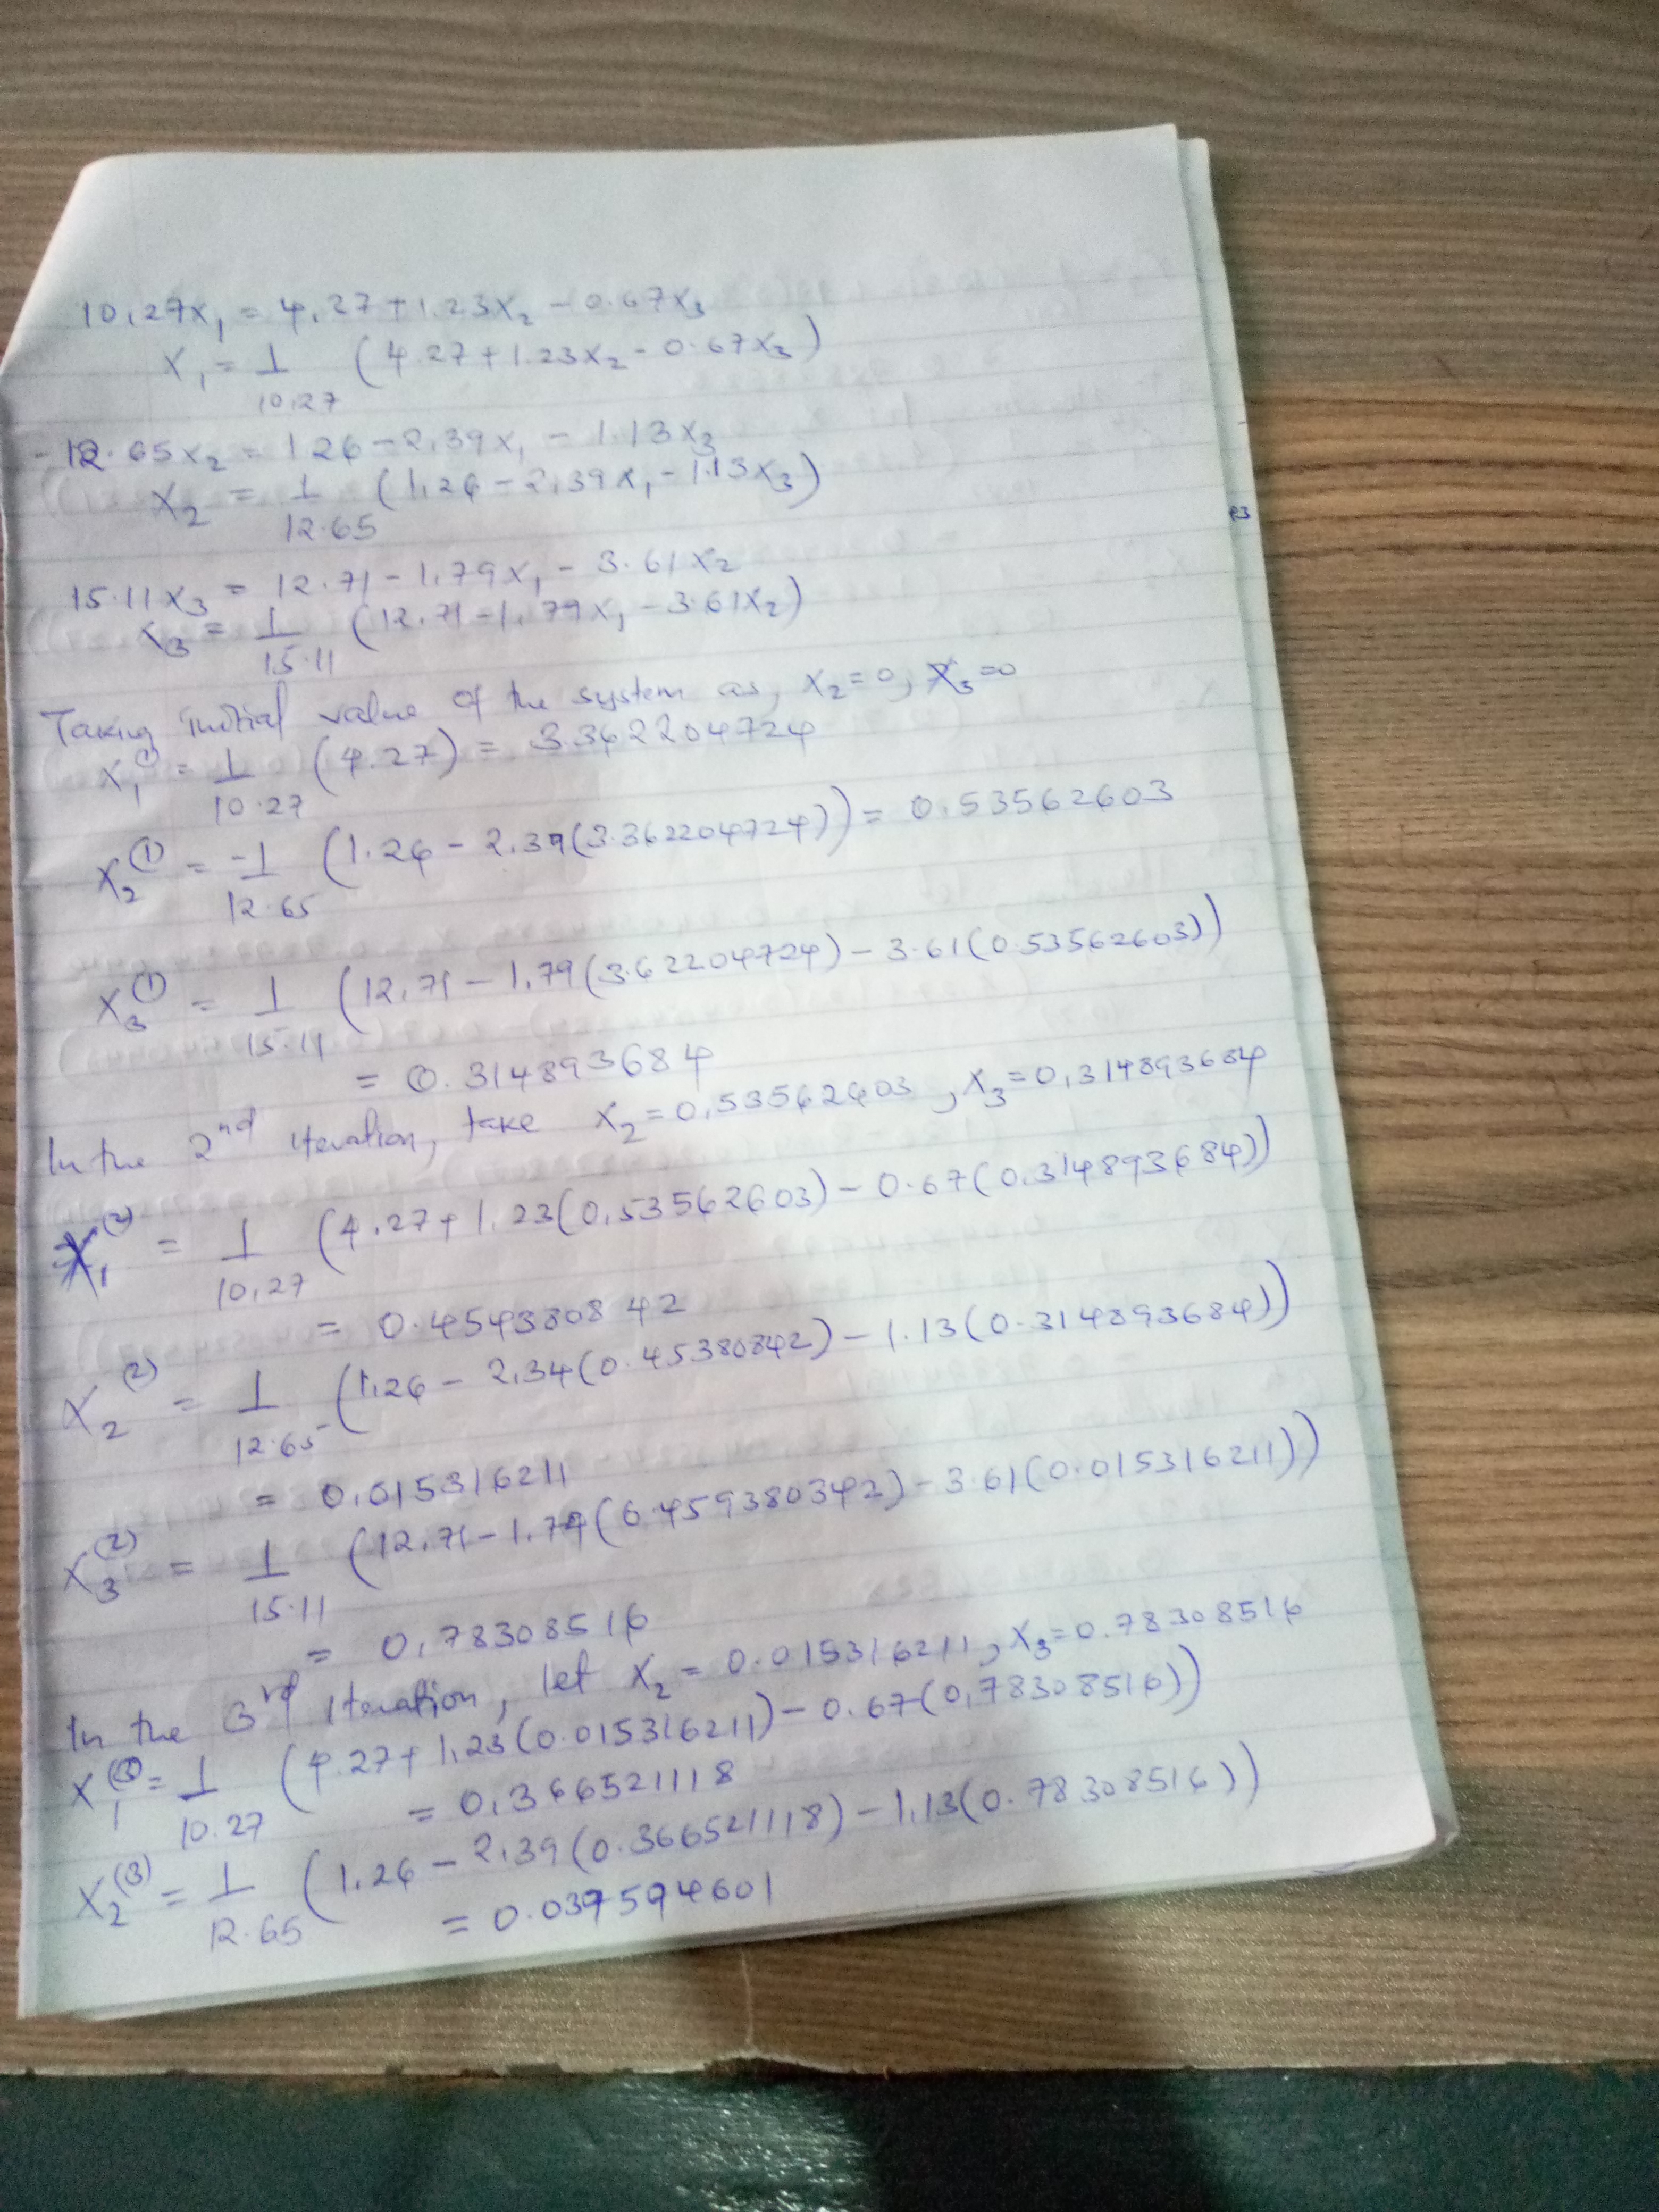 10.27x₁ = 4.27 + 1.23x₂ - 0.67x₃
x₁ = 1/10.27 (4.27 + 1.23x₂ - 0.67x₃)
-12.65x₂ = 1.26 - 2.39x₁ - 1.13x₃
x₂ = 1/12.65 (1.26 - 2.39x₁ - 1.13x₃)
15.11x₃ = 12.71 - 1.79x₁ - 3.61x₂
x₃ = 1/15.11 (12.71 - 1.79x₁ - 3.61x₂)
Taking initial value of the system as, x₂ = 0, x₃ = 0
x₁⁽¹⁾ = 1/10.27 (4.27) = 3.362204724
x₂⁽¹⁾ = -1/12.65 (1.26 - 2.39(3.362204724)) = 0.53562603
x₃⁽¹⁾ = 1/15.11 (12.71 - 1.79(3.62204724) - 3.61(0.53562603))
= 0.314893684
In the 2nd iteration, take x₂ = 0.53562603, x₃ = 0.314893684
x₁⁽²⁾ = 1/10.27 (4.27 + 1.23(0.53562603) - 0.67(0.314893684))
= 0.459380842
x₂⁽²⁾ = 1/12.65 (1.26 - 2.34(0.45380842) - 1.13(0.314893684))
= 0.015316211
x₃⁽²⁾ = 1/15.11 (12.71 - 1.79(0.459380342) - 3.61(0.015316211))
= 0.78308516
In the 3rd iteration, let x₂ = 0.015316211, x₃ = 0.78308516
x₁⁽³⁾ = 1/10.27 (4.27 + 1.23(0.015316211) - 0.67(0.78308516))
= 0.366521118
x₂⁽³⁾ = 1/12.65 (1.26 - 2.39(0.366521118) - 1.13(0.78308516))
= 0.039594601